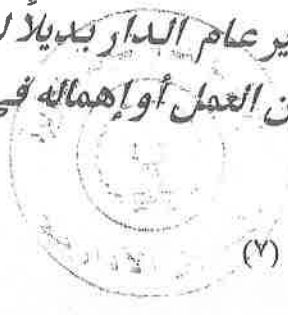 ير عام الدار بديلاً ل
ن العمل أو إهماله في
(٧)